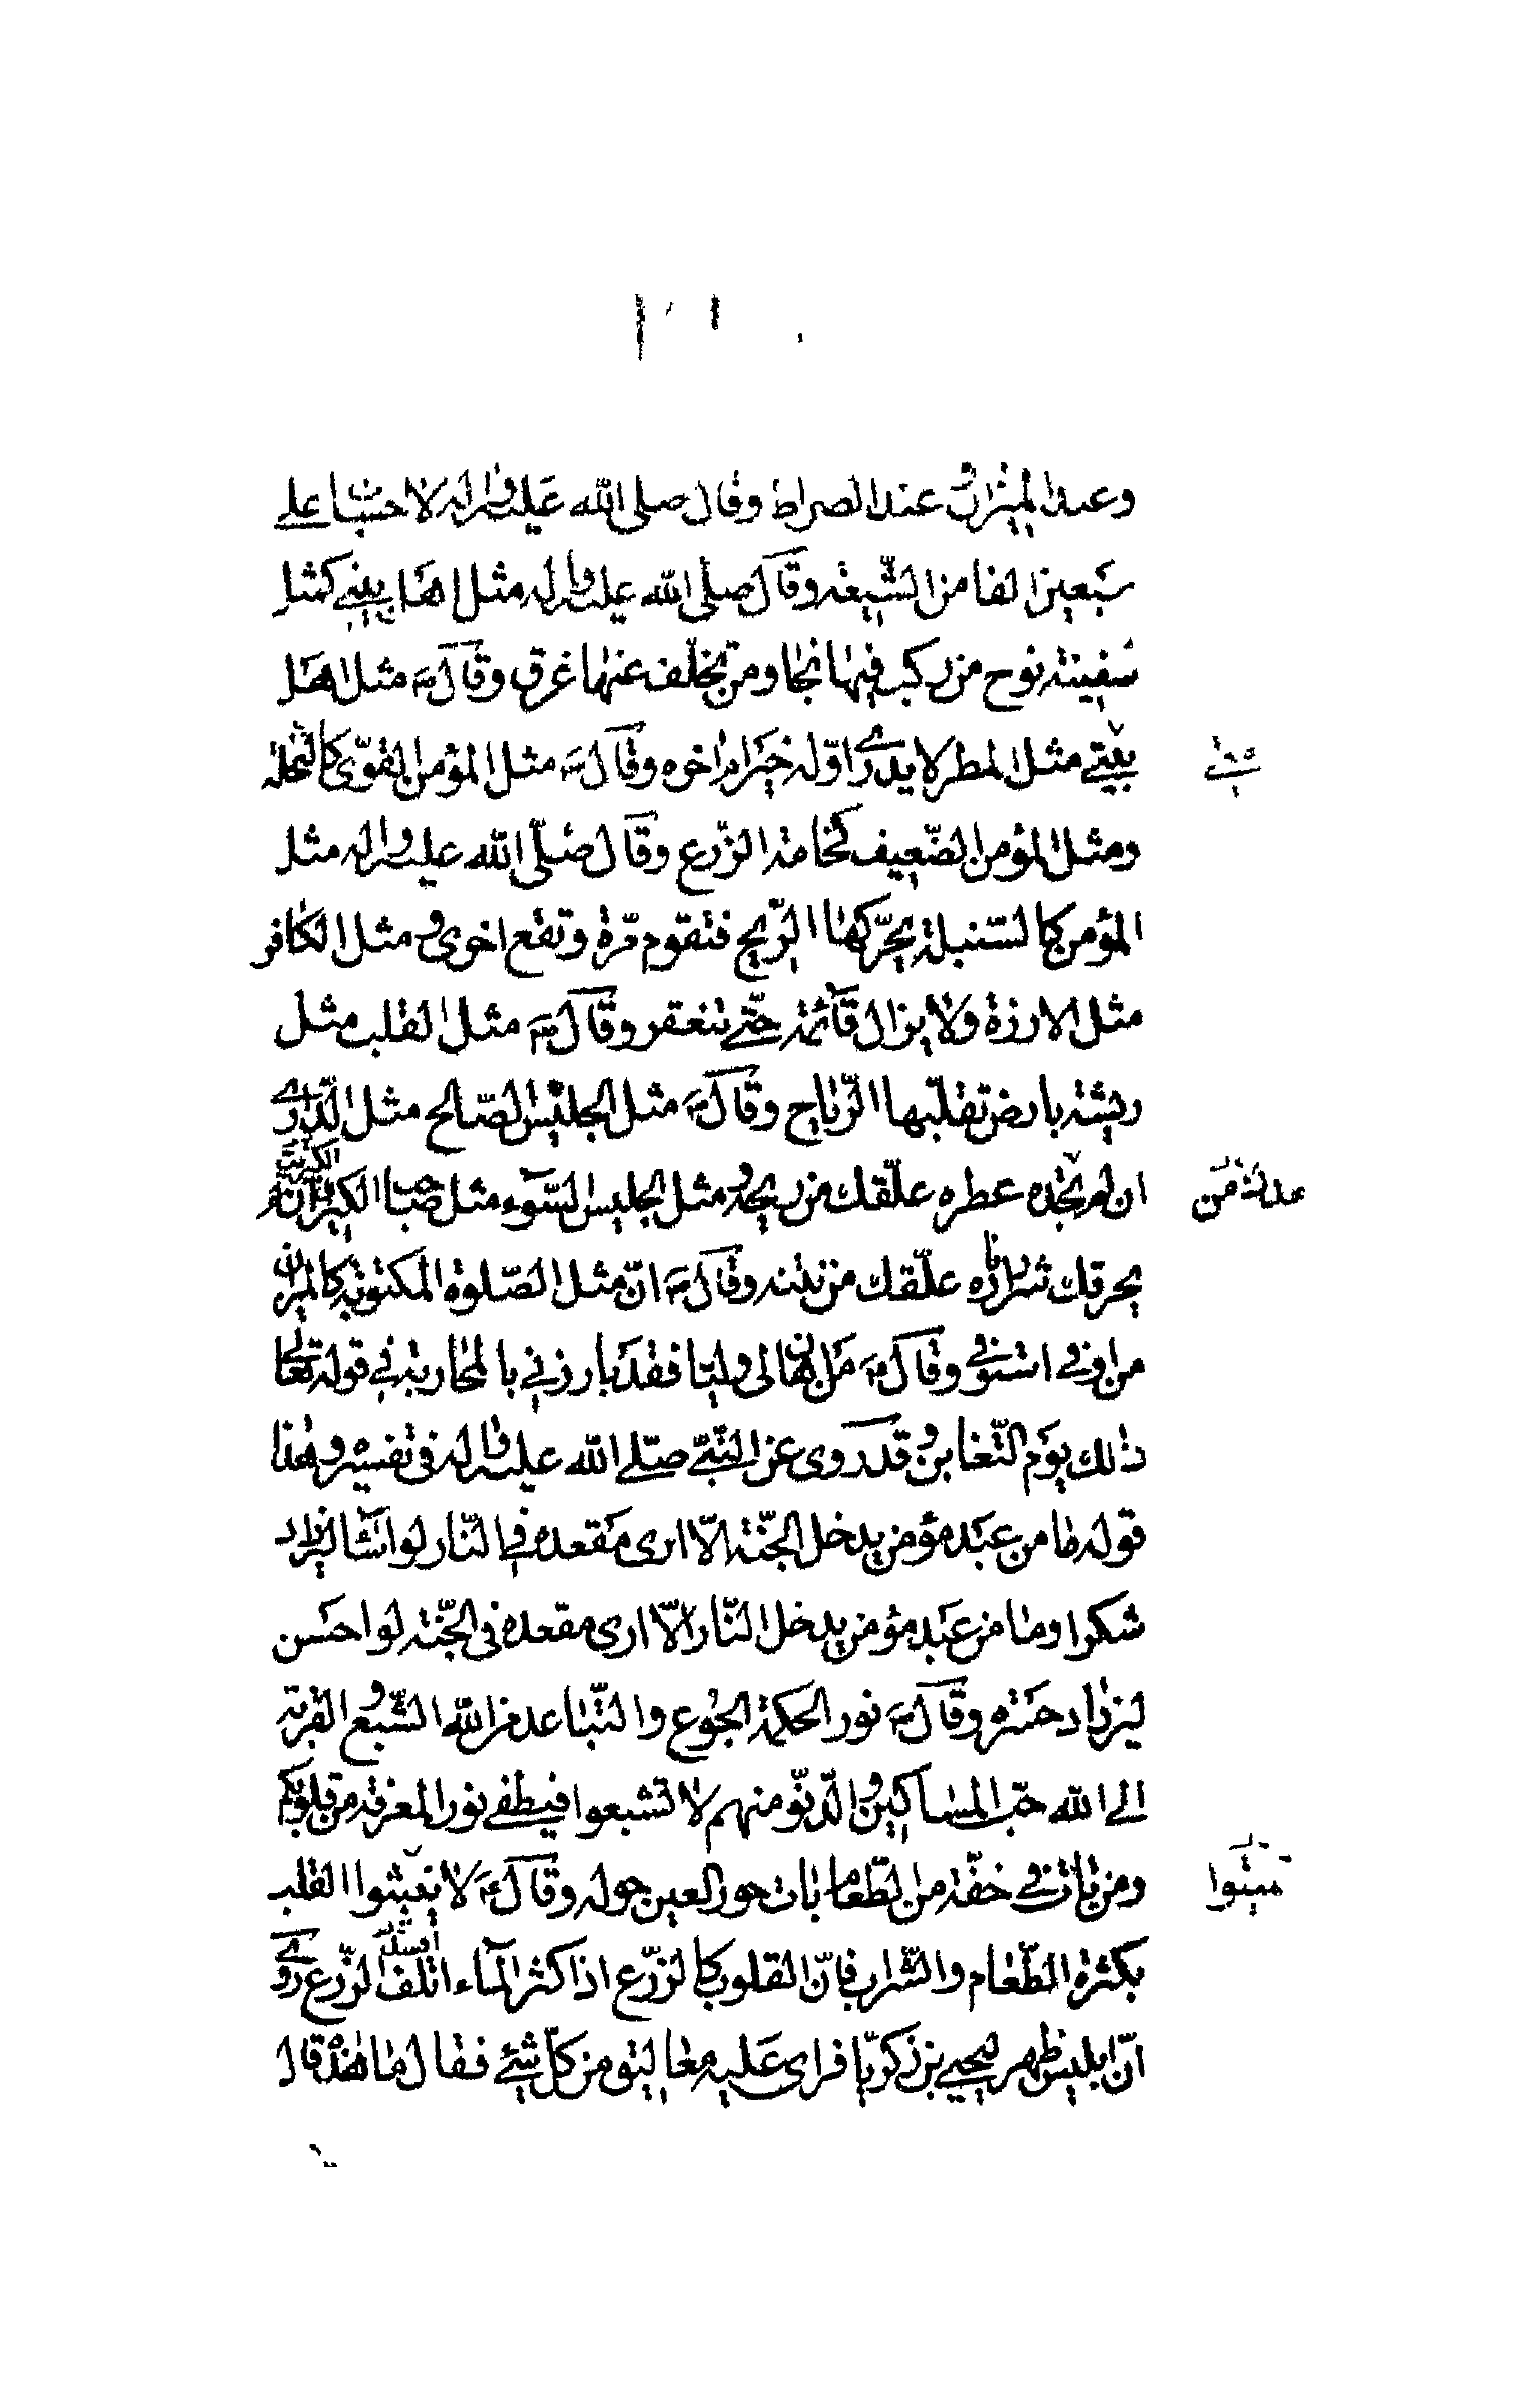 وعند الميزان وعند الصراط وقال صلى الله عليه واله لا حساب على
سبعين الفا من الشيعة وقال صلى الله عليه واله مثل اهل بيتي كمثل
سفينة نوح من ركب فيها نجا ومن تخلّف عنها غرق وقال ص مثل اهل
بيتي مثل المطر لا يدرى اوّله خير ام اخره وقال ص مثل المؤمن القوّى كالنخلة
ومثل المؤمن الضّعيف كخامة الزّرع وقال صلّى الله عليه واله مثل
المؤمن كالسنبلة يحرّكها الرّيح فتقوم مرّة وتقع اخرى ومثل الكافر
مثل الارزة ولا يزال قائمة حتّى تنعقر وقال ص مثل القلب مثل
ريشة بارض تقلّبها الرّياح وقال ص مثل الجليس الصّالح مثل الدّارى
ان لم يجده عطره علّقك من ريحه ومثل الجليس السّوء مثل صاحب الكير ان لم
يحرقك شرار ناره علّقك من نتنه وقال ص انّ مثل الصّلوة المكتوبة كالميزان
من اوفى استوفى وقال ص من اهان لى وليّا فقد بارزنى بالمحاربة فى قوله تعالى
ذلك يوم التّغابن وقد روى عن النّبىّ صلّى الله عليه واله فى تفسيره هذا
قوله ما من عبد مؤمن يدخل الجنّة الّا ارى مقعده فى النّار لو اساء ليزداد
شكرا وما من عبد مؤمن يدخل النّار الّا ارى مقعده فى الجنّة لو احسن
ليزداد حسرة وقال ص نور الحكمة الجوع والتّباعد من الله الشّبع والقربة
الى الله حبّ المساكين والدّنوّ منهم لا تشبعوا فيطفى نور المعرفة من قلوبكم
ومن بات فى خفّة من الطّعام بات حور العين حوله وقال ص لا تعيثوا القلب
تميتوا
بكثرة الطّعام والشّراب فانّ القلوب كالزّرع اذا كثر الماء اتلف الزّرع روى
انّ ابليس ظهر ليحيى بن زكريّا فراى عليه معاليق من كلّ شئ فقال ما هذه قال